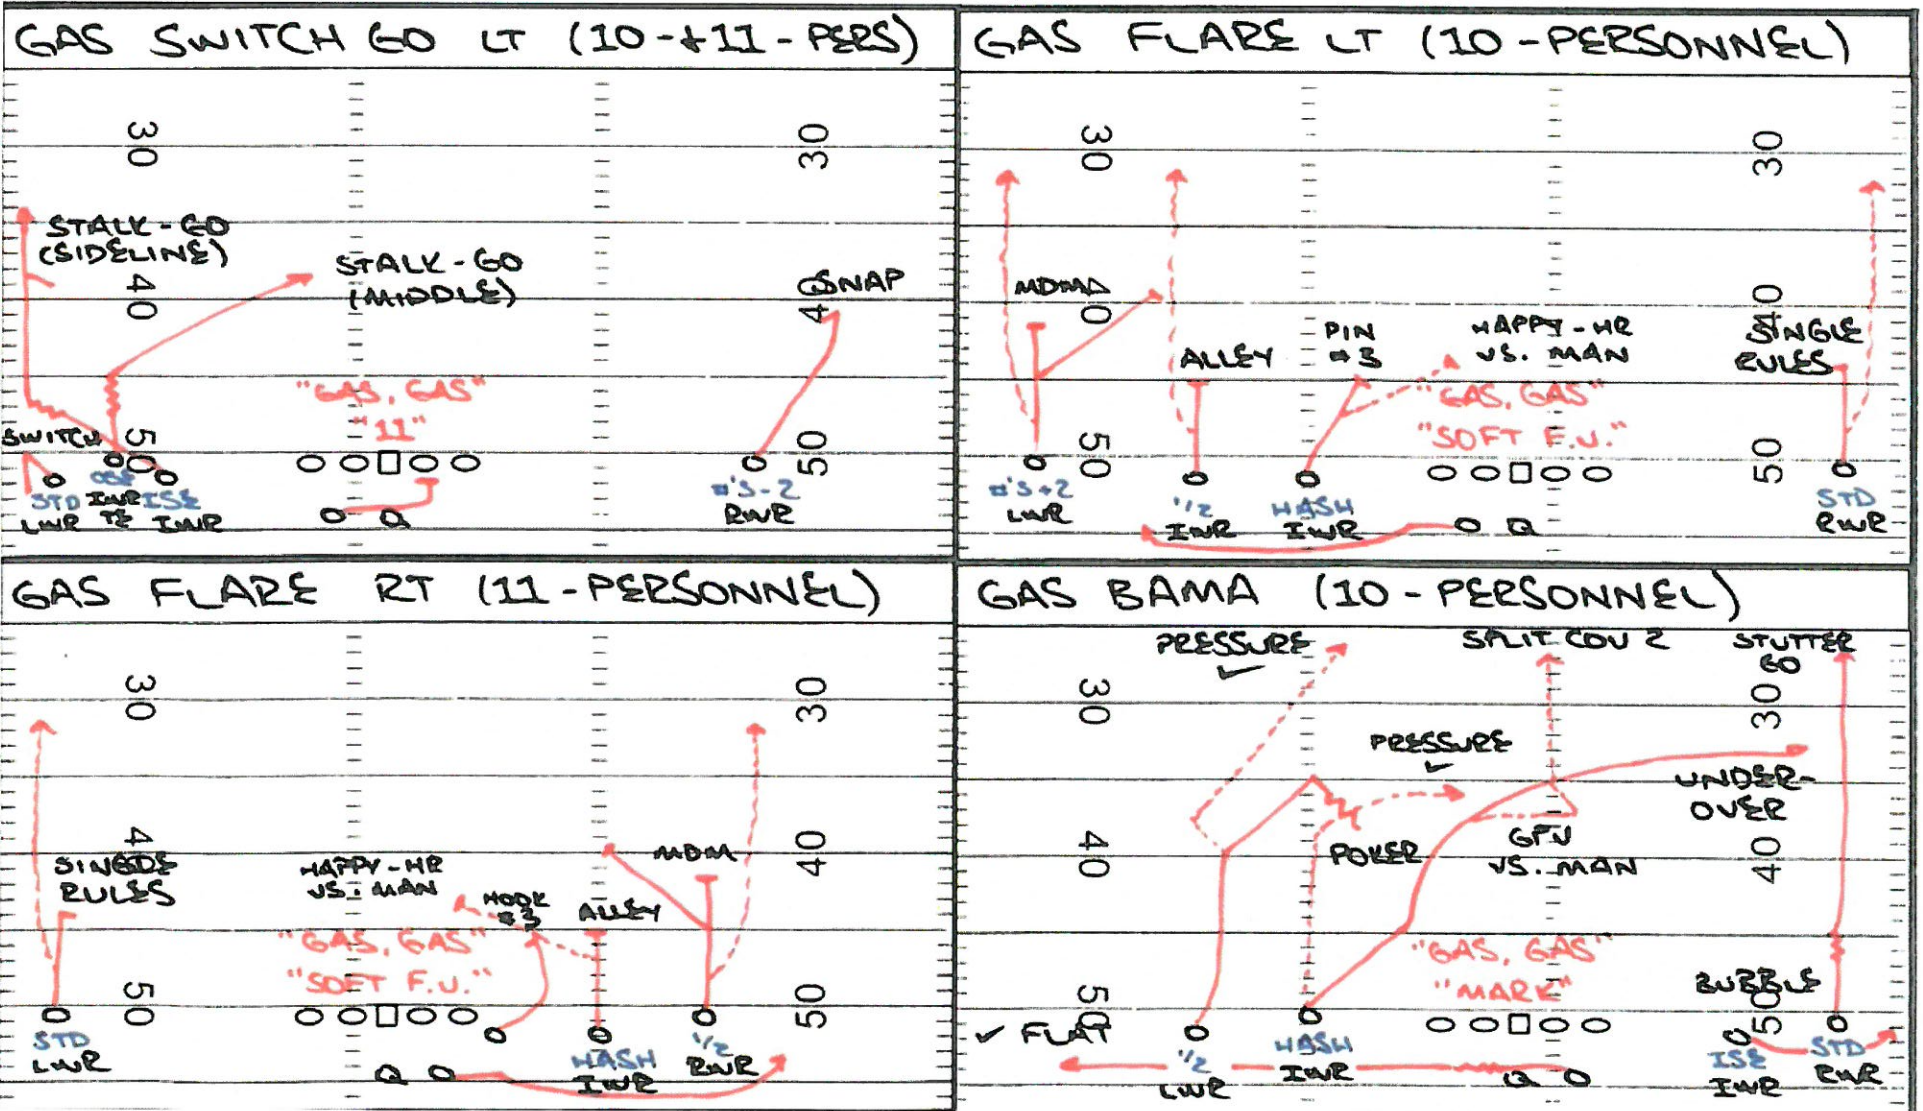 GAS SWITCH GO LT (10-+11-PERS)
30
30
STALK-GO
(SIDELINE)
STALK-GO
(MIDDLE)
SNAP
40
4
"GAS, GAS"
"11"
SWITCH
50
50
STD
ISE
LWR
IWR
TE
IWR
Q
#'S-2
RWR
GAS FLARE LT (10-PERSONNEL)
30
30
MDM
40
40
ALLEY
PIN
#3
HAPPY-HR
VS. MAN
SINGLE
RULES
"GAS, GAS"
"SOFT F.U."
50
50
#'S+2
LWR
1/2
IWR
HASH
IWR
Q
STD
RWR
GAS FLARE RT (11-PERSONNEL)
30
30
4
40
SINGLE
RULES
HAPPY-HR
VS. MAN
HOOK
#3
ALLEY
MDM
"GAS, GAS"
"SOFT F.U."
50
50
STD
LWR
Q
HASH
IWR
1/2
RWR
GAS BAMA (10-PERSONNEL)
PRESSURE
SPLIT COV 2
STUTTER
GO
30
30
PRESSURE
UNDER-
OVER
40
40
POKER
VS. MAN
"GAS, GAS"
"MARK"
BUBBLE
50
50
✓ FLAT
1/2
LWR
HASH
IWR
Q
ISE
IWR
STD
RWR